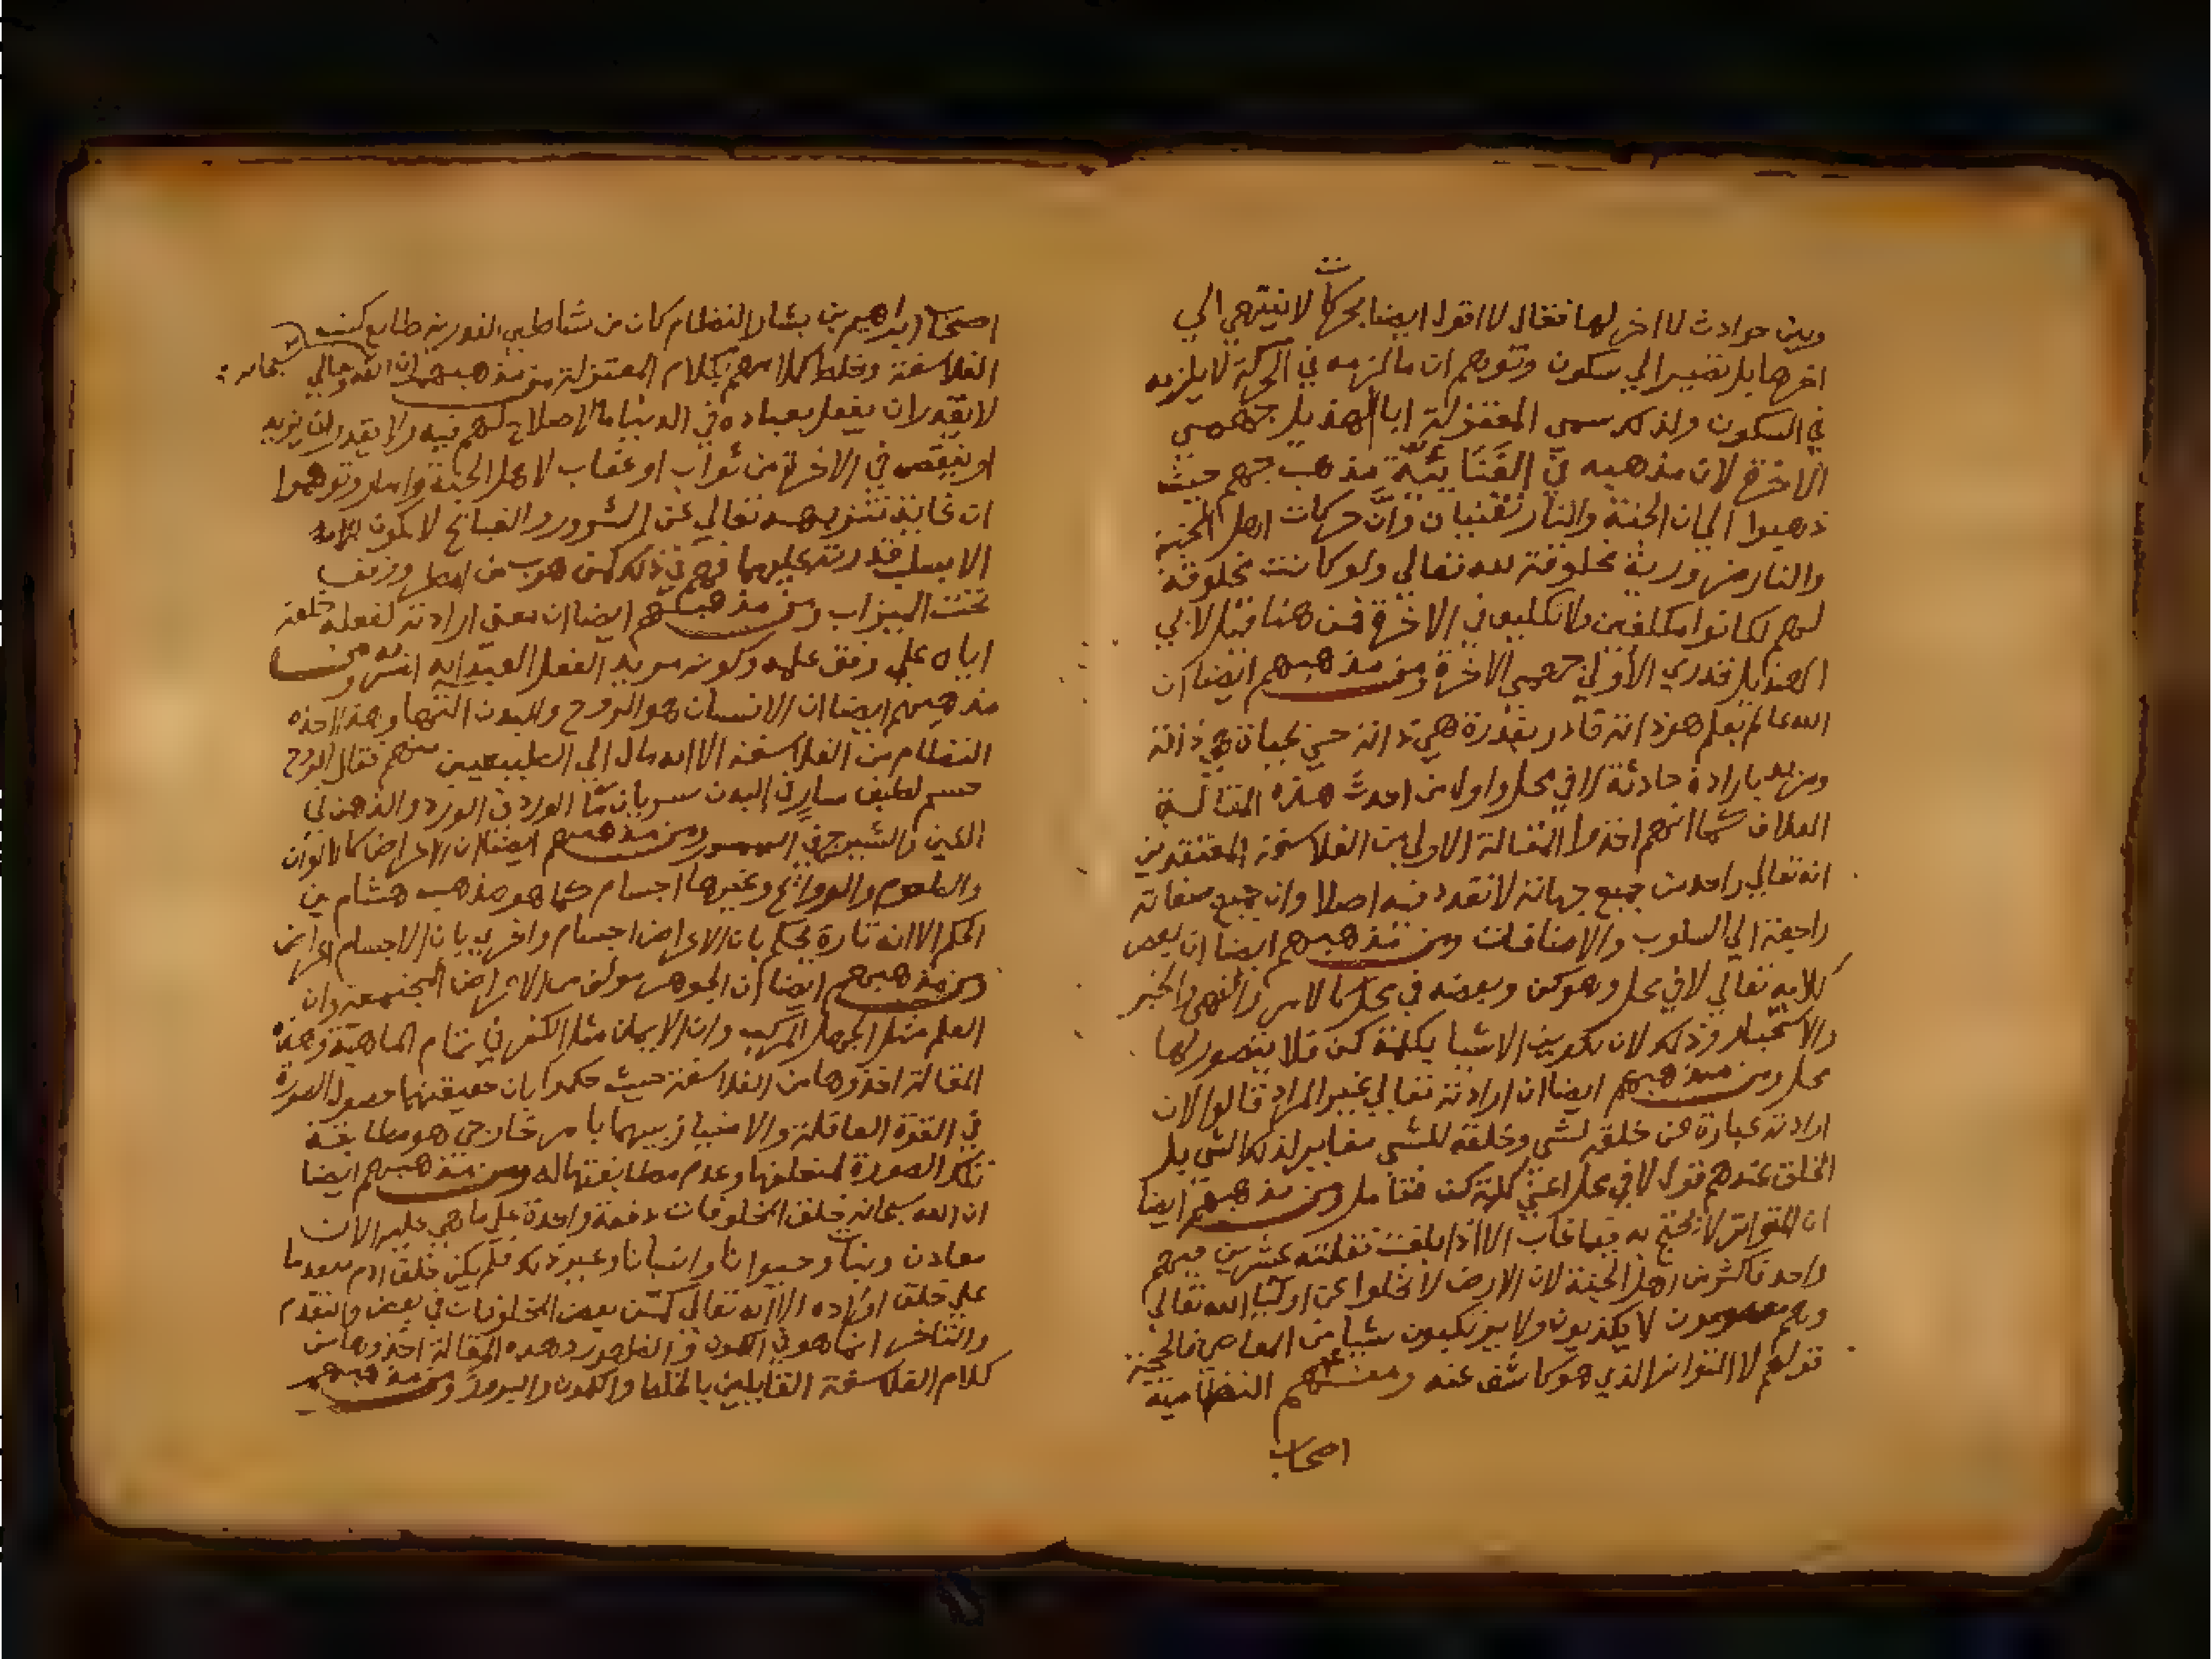 وبين حوادث لا اخر لها فقال لا اقول ايضا بحركات لا ينتهي الي
اخرها بل تصير الي سكون وتوهم ان ما لزمه في الحركة لا يلزمه
في السكون ولذلك سمي المعتزلة ابا الهذيل جهمي
الاخرة لان مذهبه في الفنا يئة مذهب جهم حيث
ذهبوا الي ان الجنة والنار تفنيان وان حركات اهل الجنة
والنار ضرورية مخلوقة لله تعالي ولو كانت مخلوقة
لهم لكانوا مكلفين ولا تكليف في الاخرة فمن هنا قيل لابي
الهذيل قدري الاولي جهمي الاخرة ومن مذهبهم ايضا ان
الله عالم بعلم هو ذاته قادر بقدرة هي ذاته حي بحياة هي ذاته
ومريد بارادة حادثة لا في محل واول من احدث هذه المقالة
العلاف ثم انهم اخذوا المقالة الاولي من الفلاسفة المعتقدين
انه تعالي واحد من جميع جهاته لا تعدد فيه اصلا وان جميع صفاته
راجعة الي السلوب والاضافات ومن مذهبهم ايضا ان بعض
كلامه تعالي لا في محل وهو كن وبعضه في محل كالامر والنهي والخبر
والاستخبار وذلك لان تكوين الاشيا بكلمة كن فلا يتصور لها
محل ومن مذهبهم ايضا ان ارادته تعالي غير المراد قالوا لان
ارادته عبارة عن خلقه لشي وخلقه للشي مغاير لذلك الشي بل
الخلق عندهم قول لا في محل اعني كلمة كن فتامل ومن مذهبهم ايضا
ان التواتر لا يحتج به فيما غاب الا اذا بلغت نقلته عشرين فيهم
واحد فاكثر من اهل الجنة لان الارض لا تخلوا عن اوليا الله تعالي
وهم معصومون لا يكذبون ولا يرتكبون شيا من المعاصي فالحجة
قولهم لا التواتر الذي هو كاشف عنه ومنهم النظامية
اصحاب
اصحاب ابراهيم بن بشار النظام كان من شاطبي القدرية طالع كتب
الفلاسفة وخلط كلامهم بكلام المعتزلة من مذهبهم ان الله تعالي
سبحانه
لا يقدر ان يفعل بعباده في الدنيا ما لا صلاح لهم فيه ولا يقدر ان يزيد
او ينقص في الاخرة من ثواب او عقاب لاهل الجنة والنار وتوهموا
ان غاية تنزيهه تعالي عن الشرور والقبائح لا يكون
الا بسلب قدرته عليها فهم في ذلك كمن هرب من المطر ووقف
تحت الميزاب ومن مذهبهم ايضا ان معني ارادته لفعله خلقه
اياه علي وفق علمه وكونه مريد الفعل العبد انه امر به ومن
مذهبهم ايضا ان الانسان هو الروح والبدن التها وهذا اخذه
النظام من الفلاسفة الا انه مال الي الطبيعيين منهم فقال الروح
جسم لطيف سار في البدن سريان ما الورد في الورد والدهن في
والشيرج في السمسم ومن مذهبهم ايضا ان الاعراض كالالوان
والطعوم والروائح وغيرها اجسام كما هو مذهب هشام بن
الحكم الا انه تارة يحكم بان الاعراض اجسام واخري بان الاجسام اعراض
ومن مذهبهم ايضا ان الجوهر مولف من الاعراض المجتمعة وان
العلم مثل الجهل المركب وان الايمان مثل الكفر في تمام الماهية وهذه
المقالة اخذوها من الفلاسفة حيث حكموا بان حقيقتهما حصول الصورة
في القوة العاقلة والامتياز بينهما بامر خارجي هو مطابقة
تلك الصورة لمتعلقها وعدم مطابقتها له ومن مذهبهم ايضا
ان الله سبحانه خلق المخلوقات دفعة واحدة علي ما هي عليه الان
معادن ونباتا وحيوانا وانسانا وغير ذلك فلم يكن خلق ادم بعد ما
علي خلق اولاده الا انه تعالي كمن بعض المخلوقات في بعض والتقدم
والتاخر انما هو في الكمون والظهور وهذه المقالة اخذوها من
كلام الفلاسفة القايلين بالخلط والكمون والبروز ومن مذهبهم